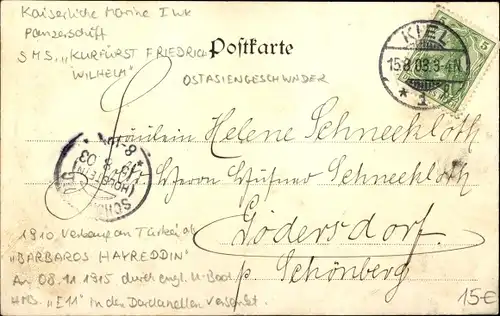 Kaiserliche Marine I WK
Panzerschiff
SMS. „KURFÜRST FRIEDRICH
WILHELM"
Postkarte
OSTASIENGESCHWADER
5
KIEL
15.8.03.3-4N.
* 1
Fräulein Helene Schneekloth
Herrn Hufner Schneekloth
Gödersdorf
p. Schönberg
SCHÖ
(HOLSTEIN)
8.03
1910 Verkauf an Türkei als
"BARBAROS HAYREDDIN"
Am 08.11.1915 durch engl. U-Boot
HMS. „E11" in den Dardanellen versenkt.
15€